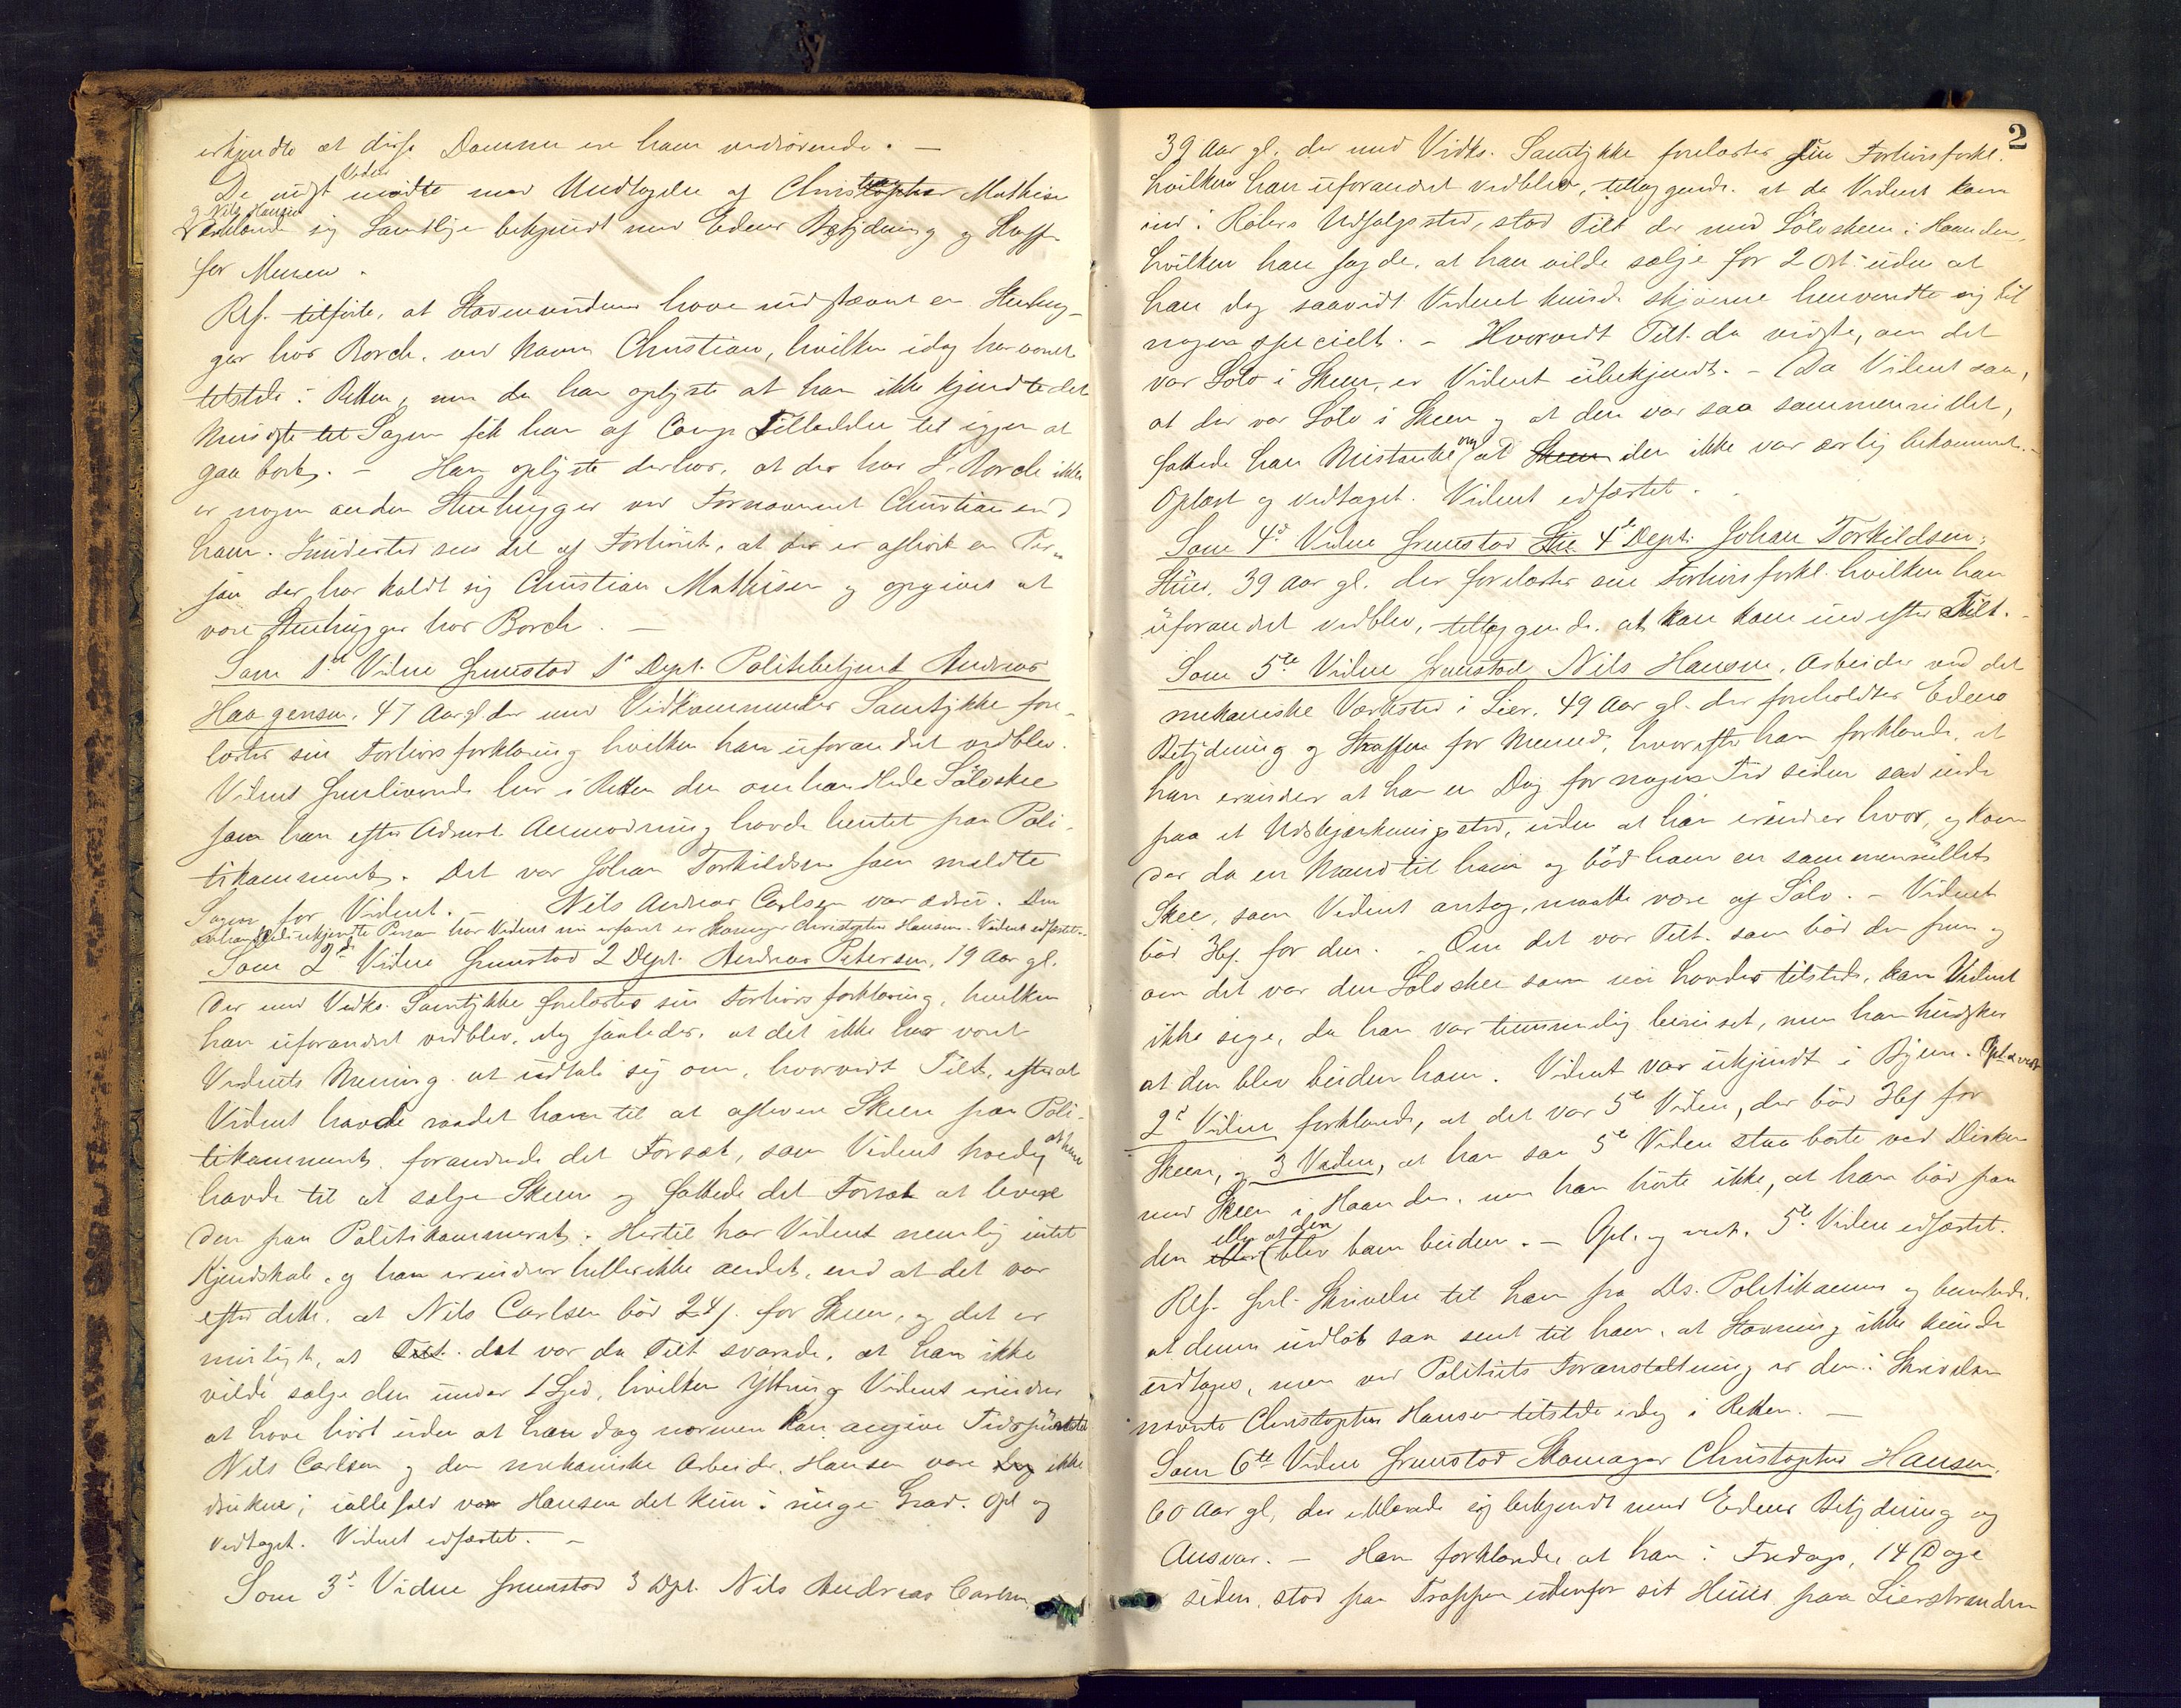 erkjendte at disse Domme ere ham vedrörende. —
De nyst mödte Vidner med Undtagelse af Christian Mathisen
og Nils Hansen
erklærede sig samtlige bekjendt med Edens Betydning og Straffen
for Meneed.
Ref. tilförte, at Stævnevidnerne have indstævnt en Stenhug-
ger hos Borch, ved Navn Christian, hvilken idag har været
tilstede i Retten, men da han oplyste at han ikke kjendte det
mindste til Sagen fik han af Comp Tilladelse til igjen at
gaa bort. — Han oplyste derhos, at der hos S. Borch ikke
er nogen anden Stenhugger ved Fornavnet Christian end
ham. Imidlertid sees det af Forhöret, at der er afhört en Per-
son der har kaldt sig Christian Mathisen og opgivet at
være Stenhugger hos Borch. —
Som 1ste Vidne fremstod 1ste Dept. Politibetjent Andreas
Haagensen, 47 Aar gl der med Vedkommendes Samtykke fore-
læstes sin Forhörsforklaring hvilken han uforandret vedblev.
Vidnet fremleverede her i Retten den omhandlede Sölvskee
som han efter Admst. Anmodning havde hentet paa Poli-
tikammeret. Det var Johan Torkildsen som meldte
Sagen for Vidnet. — Nils Andreas Carlsen var ædru. Den
ukjendte Person har Vidnet nu erfaret er Skomager Christopher Hansen. Vidnet edfæstet. -
Som 2det Vidne fremstod 2 Dept. Andreas Petersen, 19 Aar gl.
der med Vedks. Samtykke forelæstes sin Forhörsforklaring, hvilken
han uforandret vedblev, dog saaledes, at det ikke har været
Vidnets Mening at udtale sig om, hvorvidt Tilt. efter at
Vidnet havde raadet ham til at aflevere Skeen paa Poli-
tikammeret, forandrede det Forsæt, som Vidnet troede at han
havde til at sælge Skeen og fattede det Forsæt at levere
den paa Politikammeret. Hertil har Vidnet nemlig intet
Kjendskab, og han erindrer hellerikke andet, end at det var
efter dette, at Nils Carlsen böd 24 s. for Skeen, og det er
muligt, at det var da Tilt svarede, at han ikke
vilde sælge den under 1 Spd, hvilken Yttring Vidnet erindrer
at have hört uden at han dog nærmere kan angive Tidspunktet
Nils Carlsen og den mekaniske Arbeider Hansen vare ikke
drukne; iallefald var Hansen det kun i ringe Grad. Opl og
vedtaget. Vidnet edfæstet. —
Som 3die Vidne fremstod 3 Dpt. Nils Andreas Carlsen
2
39 Aar gl. der med Vedks. Samtykke forelæstes sin Forhörsforkl.
hvilken han uforandret vedblev, tillæggende, at da Vidnet kom
ind i Udsalgssted, stod Tilt der med Sölvskeen i Haanden,
hvilken han sagde, at han vilde sælge for 2 Ort uden at
han dog saavidt Vidnet kunde skjönne henvendte sig til
nogen specielt. — Hvorvidt Tilt. da vidste, om det
var Sölv i Skeen, er Vidnet ubekjendt. — Da Vidnet saa,
at der var Sölv i Skeen og at den var saa sammenrullet,
fattede han Mistanke om at den ikke var ærlig bekommet. -
Oplæst og vedtaget. Vidnet edfæstet.
Som 4de Vidne fremstod 4de Dept. Johan Torkildsen,
39 Aar gl. der forelæstes sin Forhörsforkl. hvilken han
uforandret vedblev, tillæggende, at han kom ind efter Tilt. -
Som 5te Vidne fremstod Nils Hansen, Arbeider ved det
mekaniske Værksted i Lier, 49 Aar gl. der foreholdtes Edens
Betydning og Straffen for Meneed, hvorefter han forklarede, at
han erindrer at han en Dag for nogen Tid siden sad inde
paa et Udskjænkningssted, uden at han erindrer hvor, og kom
der da en Mand til ham og böd ham en sammenrullet
Skee, som Vidnet antog, maatte være af Sölv. — Vidnet
böd 3 s. for den. - Om det var Tilt. som böd den frem og
om det var den Sölvskee som nu havdes tilstede, kan Vidnet
ikke sige, da han var temmelig beruset, men han husker
at den blev buden ham. Vidnet var ukjendt i Byen. Opl & vedt.
2det Vidne forklarede, at det var 5te Vidne, der böd 3 s for
Skeen, og 3 Vidne, at han saa 5te Vidne staa borte ved Disken
med Skeen i Haanden, men han hörte ikke, at han böd paa
den eller at den blev ham buden. — Opl. og vedt. 5te Vidne edfæstet.
Ref. frl. Skrivelse til ham fra Ds. Politikammer og bemærkede,
at denne indlöb saa sent til ham, at Stævning ikke kunde
udtages, men ved Politiets Foranstaltning er den i Skrivelsen
nævnte Christopher Hansen tilstede idag i Retten. —
Som 6te Vidne fremstod Skomager Christopher Hansen,
60 Aar gl, der erklærede sig bekjendt med Edens Betydning og
Ansvar. — Han forklarede at han i Fredags, 14 Dage
siden, stod paa Trappen udenfor sit Huus paa Lierstranden